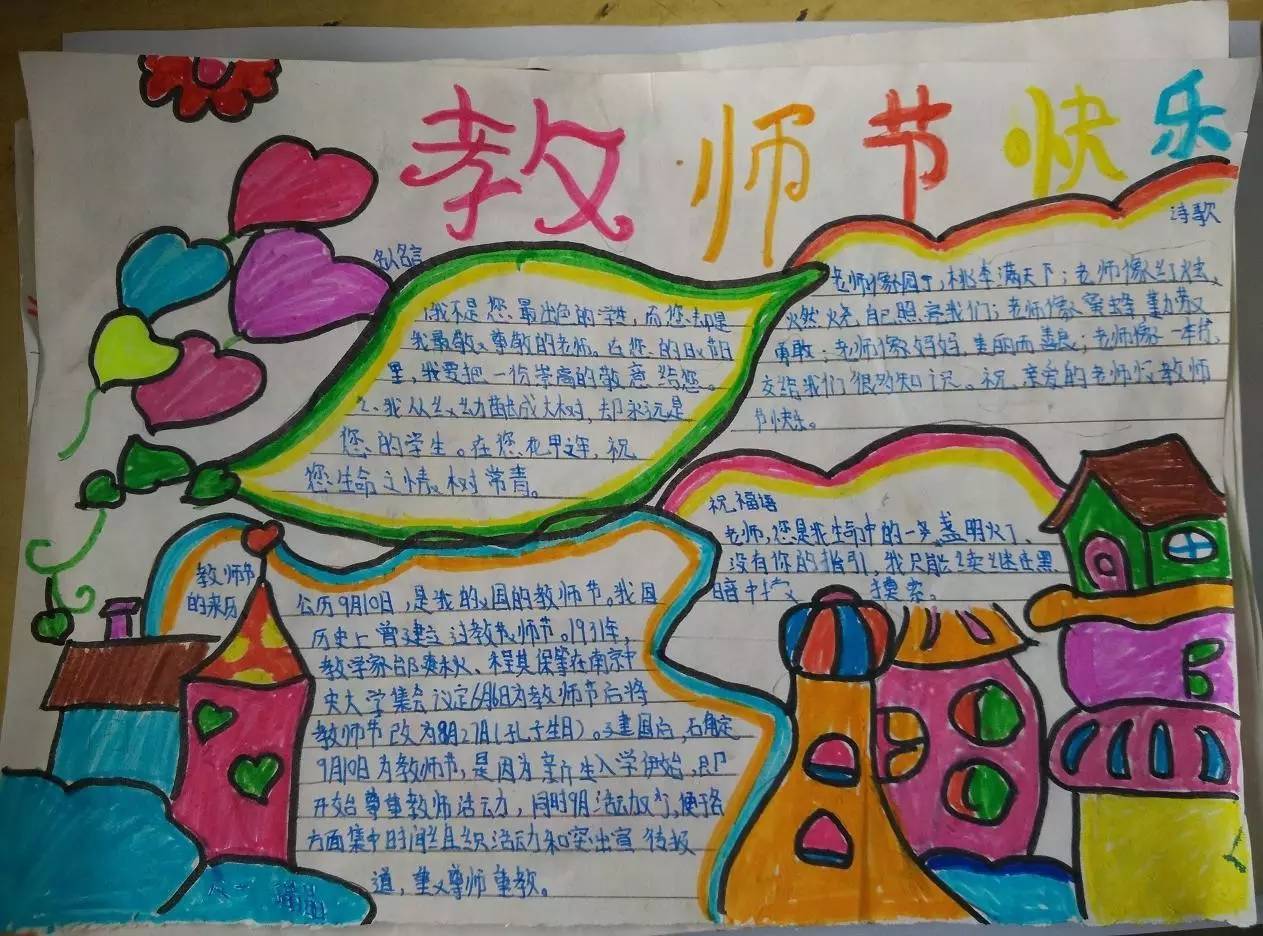 教师节快乐
名言
1.我不是您最出色的学生,而您却是
我最敬尊敬的老师。在您的日节日
里,我要把一份崇高的敬意给您。
2、我从幼苗长成大树,却永远是
您的学生。在您花甲之年,祝
您生命之树常青。
诗歌
老师像园丁,桃李满天下;老师像红烛,
燃烧自己照亮我们;老师像蜜蜂,勤劳
勇敢;老师像妈妈,美丽而善良;老师像一本书,
交给我们很多知识。祝亲爱的老师们教师
节快乐。
祝福语
老师,您是我生命中的一盏明灯,
没有你的指引,我只能继续在黑
暗中摸索。
教师节
的来历
公历9月10日,是我的国的教师节。我国
历史上曾建立过教师节。1931年,
教学家邰爽秋、程其保等在南京中
央大学集会议定6月6日为教师节后将
教师节改为8月27日(孔子生日)。建国后,确定
9月10日为教师节,是因为新生入学伊始,即
开始尊重教师活动,同时9月活动较少,便于各
方面集中时间组织活动和突出宣传报
道,重尊师重教。